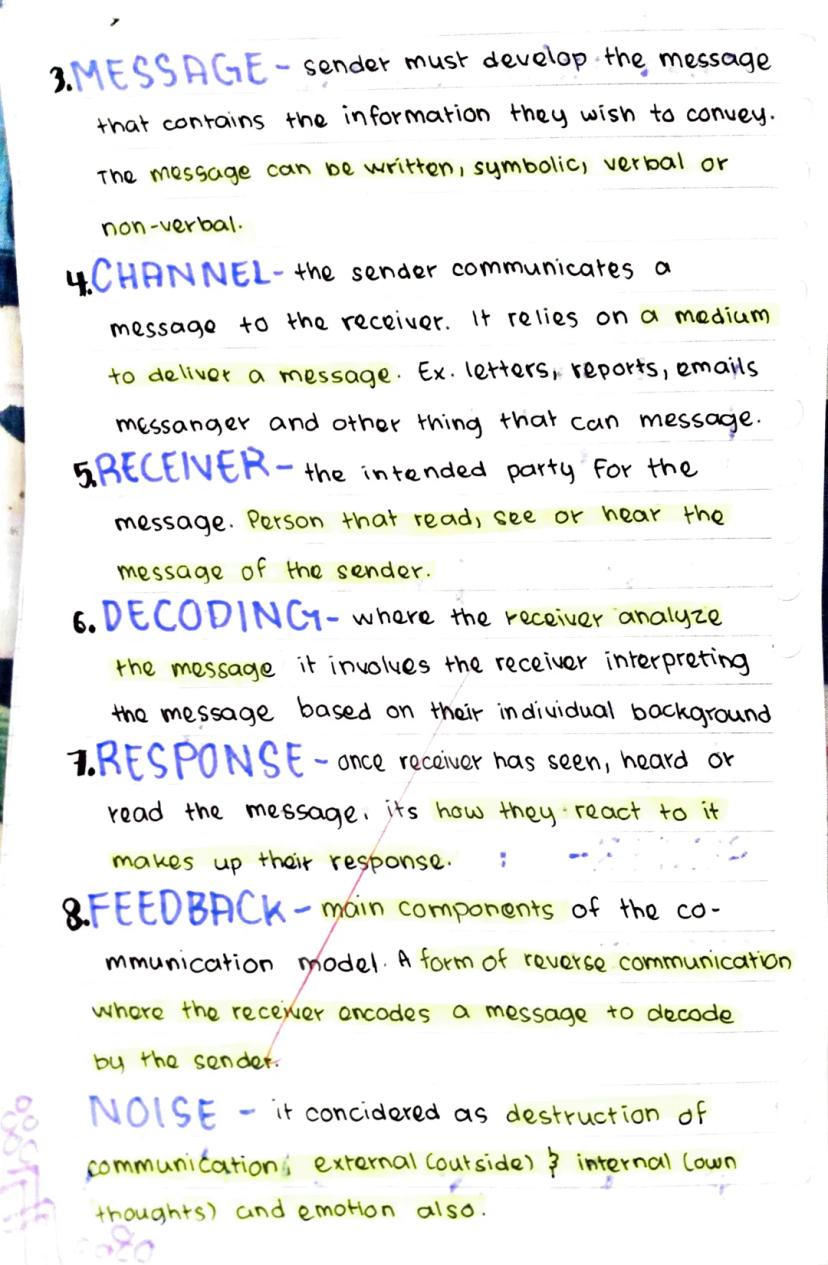 3. MESSAGE - sender must develop the message
that contains the information they wish to convey.
The message can be written, symbolic, verbal or
non-verbal.
4. CHANNEL - the sender communicates a
message to the receiver. It relies on a medium
to deliver a message. Ex. letters, reports, emails
messanger and other thing that can message.
5. RECEIVER - the intended party for the
message. Person that read, see or hear the
message of the sender.
6. DECODING - where the receiver analyze
the message it involves the receiver interpreting
the message based on their individual background
7. RESPONSE - once receiver has seen, heard or
read the message, its how they react to it
makes up their response.
8. FEEDBACK - main components of the co-
mmunication model. A form of reverse communication
where the receiver encodes a message to decode
by the sender.
NOISE - it concidered as destruction of
communication; external (outside) & internal (own
thoughts) and emotion also.